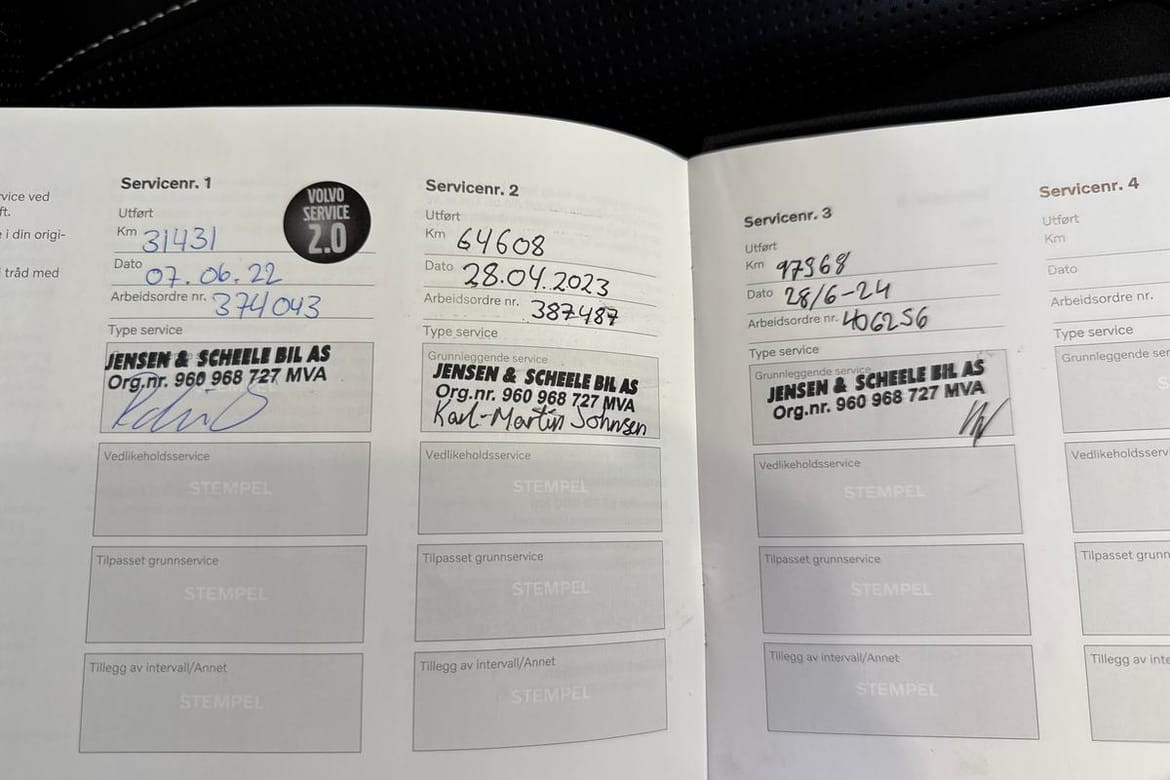 vice ved
ft.
e i din origi-
i tråd med
Servicenr. 1
Utført
Km 31431
Dato 07.06.22
Arbeidsordre nr. 374043
Type service
JENSEN & SCHEELE BIL AS
Org.nr. 960 968 727 MVA
Vedlikeholdsservice
STEMPEL
Tilpasset grunnservice
STEMPEL
Tillegg av intervall/Annet
STEMPEL
VOLVO
SERVICE
2.0
Servicenr. 2
Utført
Km 64608
Dato 28.04.2023
Arbeidsordre nr. 387487
Type service
Grunnleggende service
JENSEN & SCHEELE BIL AS
Org.nr. 960 968 727 MVA
Karl-Martin Johnsen
Vedlikeholdsservice
STEMPEL
Tilpasset grunnservice
STEMPEL
Tillegg av intervall/Annet
STEMPEL
Servicenr. 3
Utført
Km 97968
Dato 28/6-24
Arbeidsordre nr. 406256
Type service
Grunnleggende service
JENSEN & SCHEELE BIL AS
Org.nr. 960 968 727 MVA
Vedlikeholdsservice
STEMPEL
Tilpasset grunnservice
STEMPEL
Tillegg av intervall/Annet
STEMPEL
Servicenr. 4
Utført
Km
Dato
Arbeidsordre nr.
Type service
Grunnleggende ser
Vedlikeholdsserv
Tilpasset grunn
Tillegg av inte